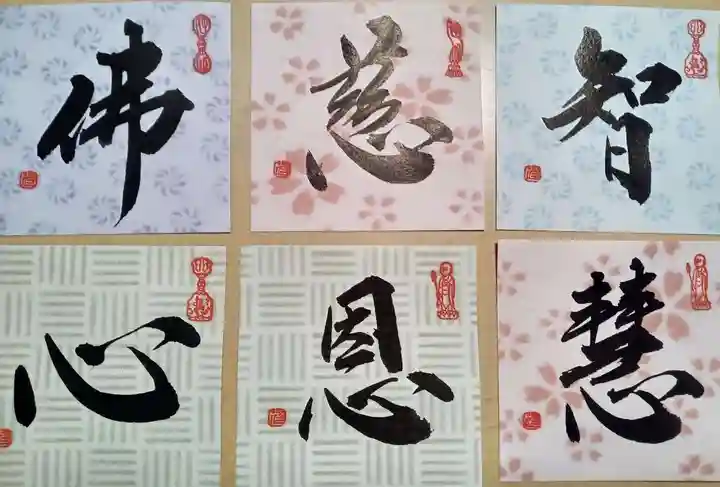 佛 慈 智
心 恩 慧